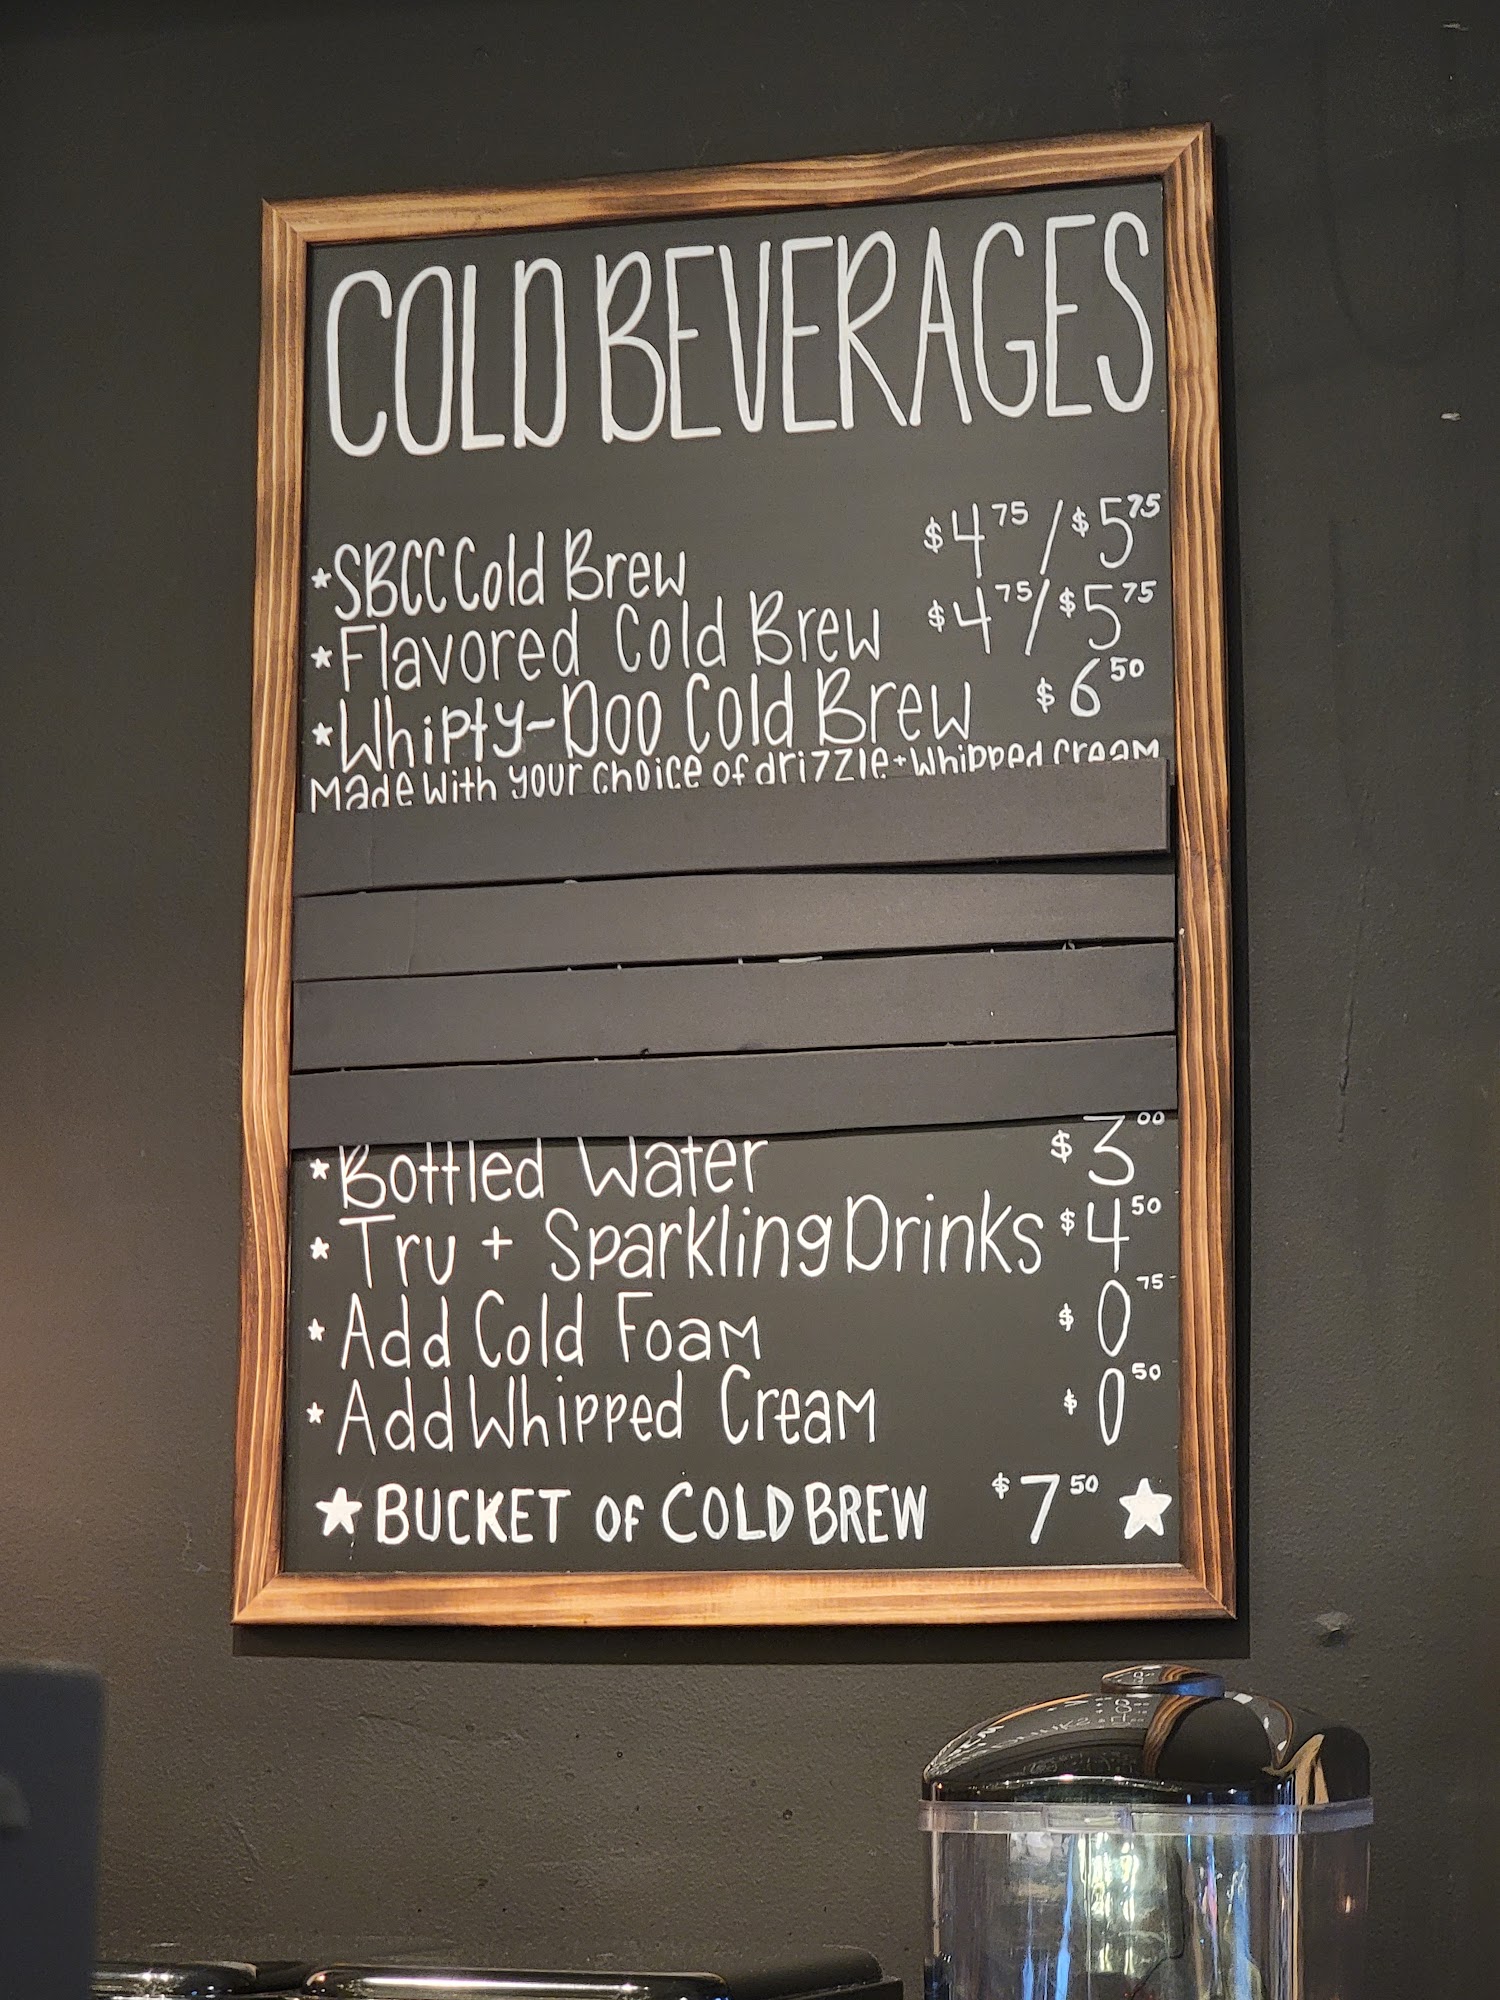 COLD BEVERAGES
★SBCC Cold Brew $4 75 / $5 75
★Flavored Cold Brew $4 75 / $5 75
★Whipty-Doo Cold Brew $6 50
Made with your choice of drizzle + whipped cream
★Bottled Water $3 00
★Tru + Sparkling Drinks $4 50
★Add Cold Foam $0 75
★Add Whipped Cream $0 50
★BUCKET OF COLD BREW $7 50 ★